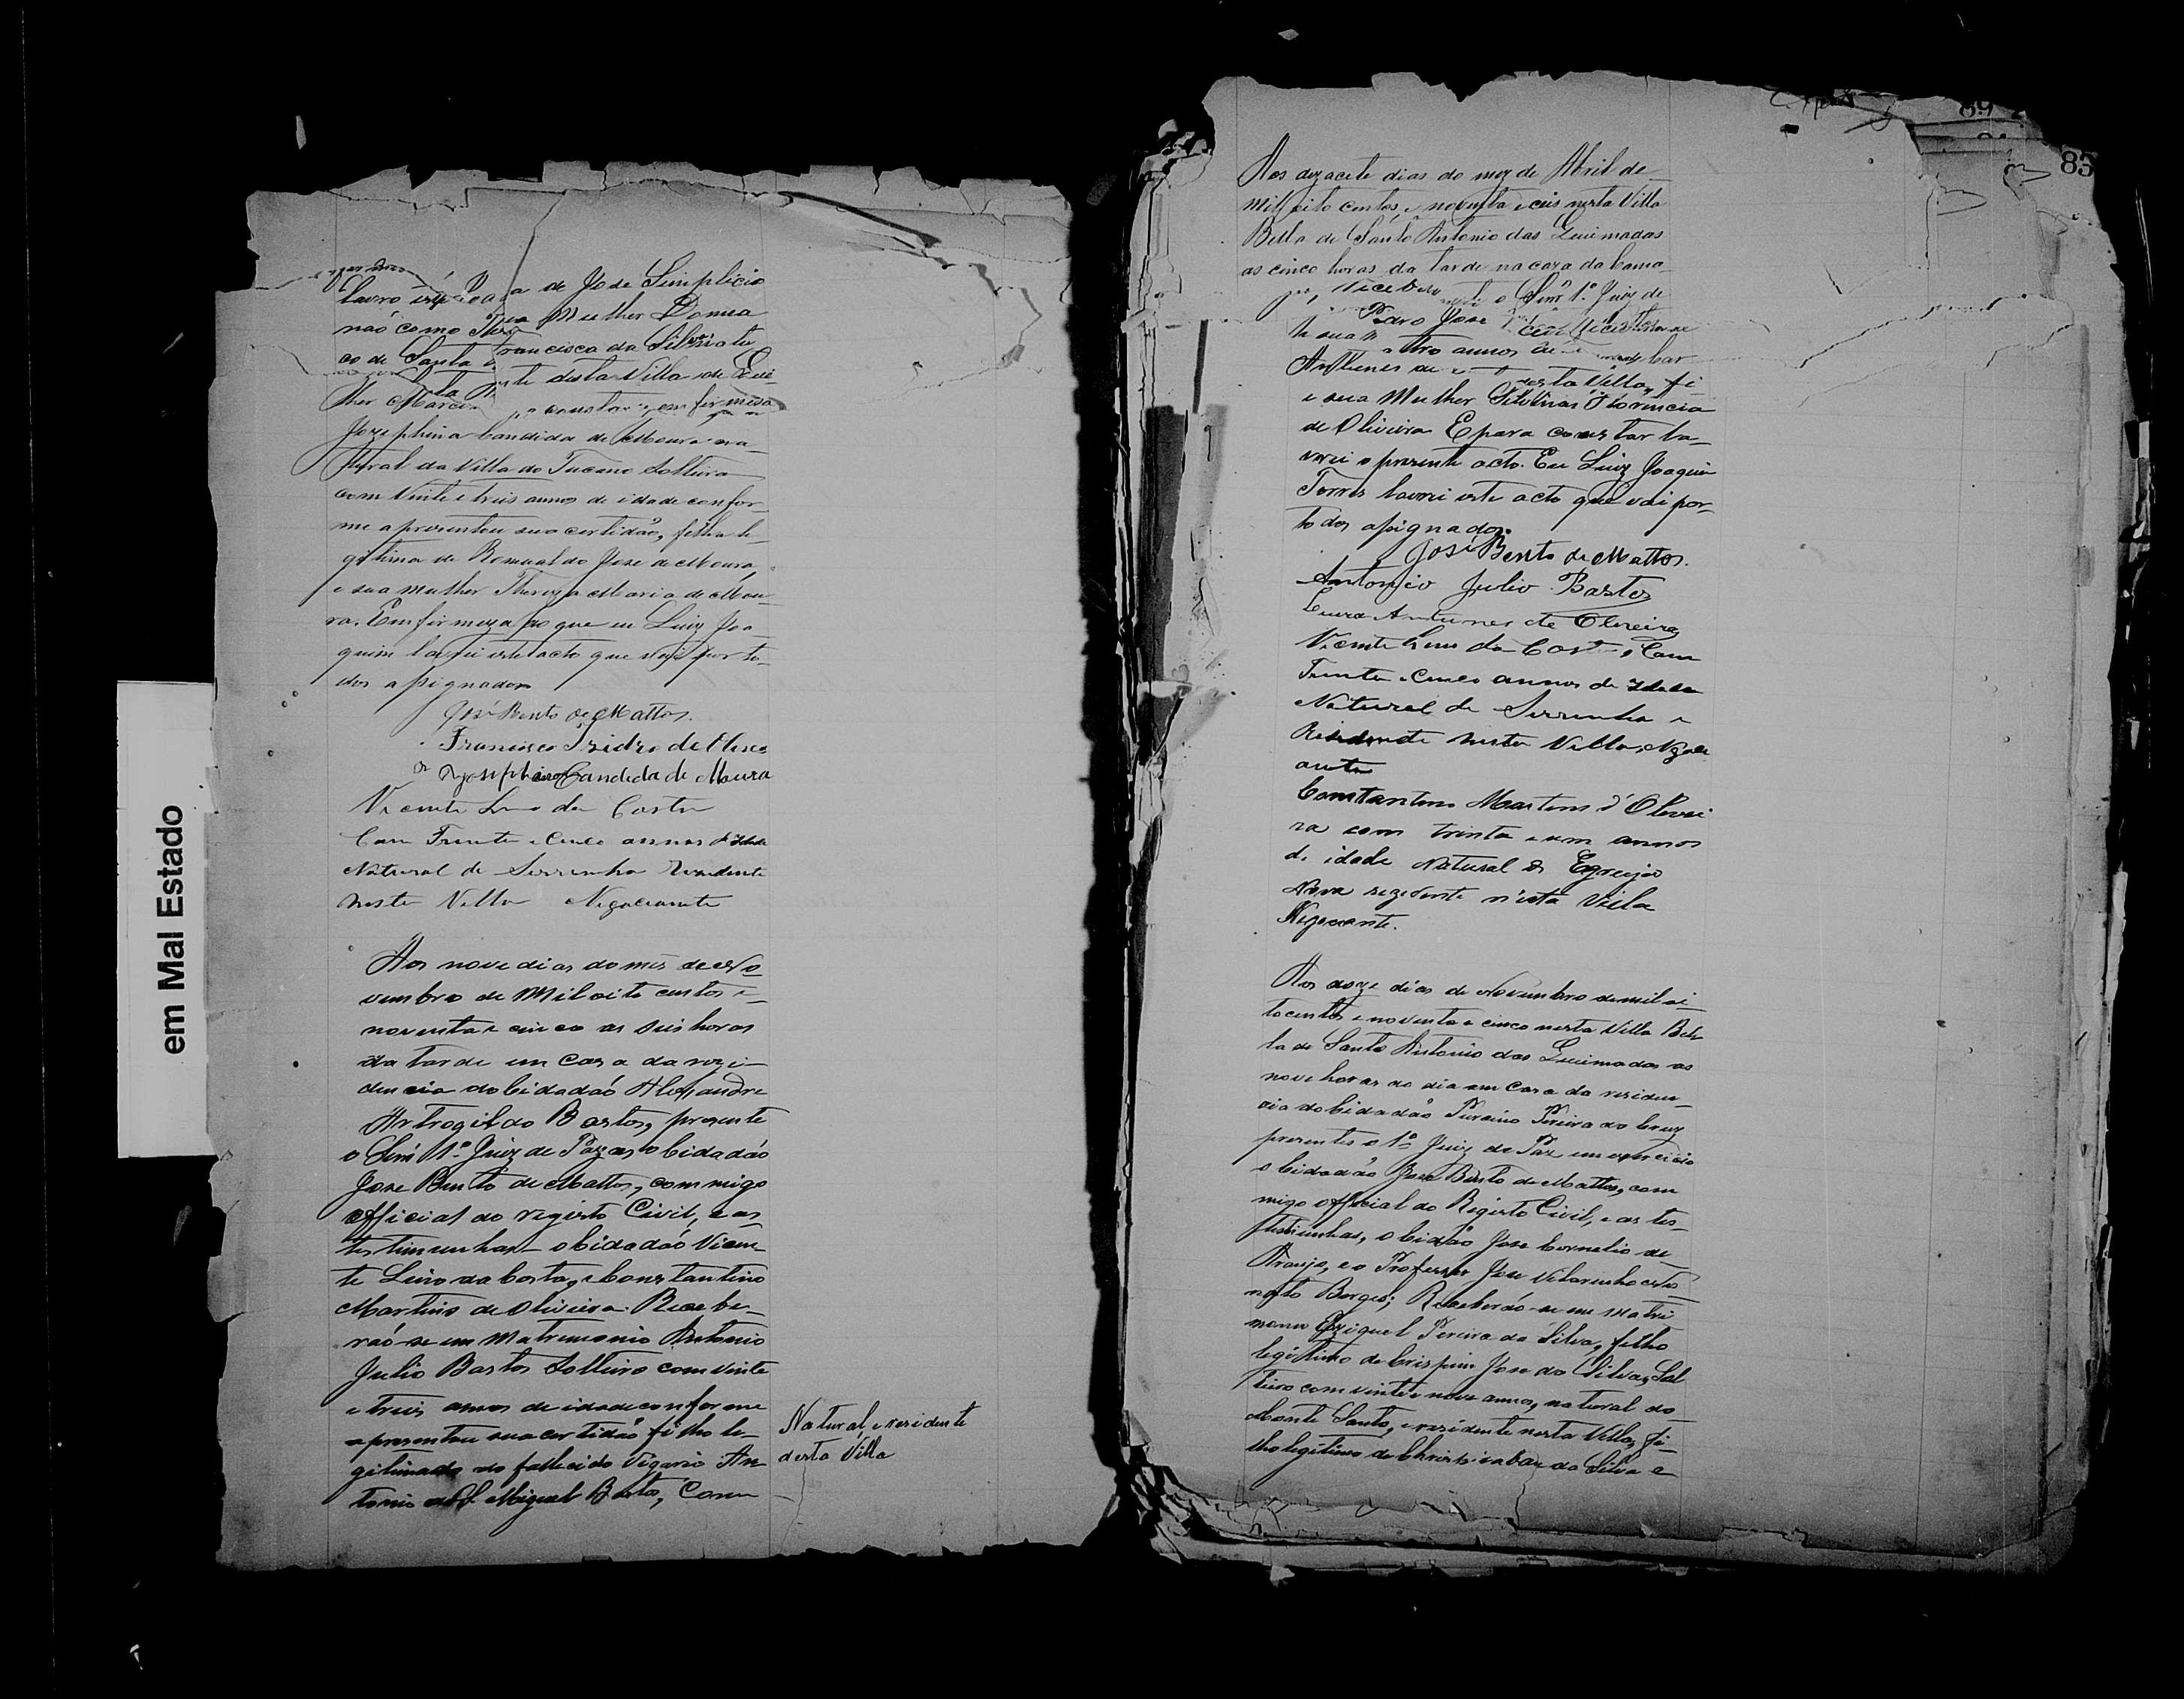 em Mal Estado
de Jose Simplicio
Mulher Donna
não como
Francisca da Silva
co de Santa
desta Villa de
lher
Jozephina Candida de Moura na-
tural da Villa do Tucano Solteira
com Vinte e treis annos de idade confor-
me apresentou sua certidão, filha le-
gitima de Romualdo Jose de Moura,
e sua mulher Thereza Maria de Mou-
ra. Em firmeza do que eu Luiz Joa-
quim lavrei este acto que vai por to-
dos assignados
José Bento de Mattos.
Francisco Izidro
Josephina Candida de Moura
Vicente Lino da Costa
Com Trinta e Cinco annos d'Idade
Natural de Serrinha Rezidente
nesta Villa Negociante
Aos nove dias do mês de No-
vembro de Mil oito centos e
noventa e cinco as seis horas
da tarde em Caza da rezi-
dencia do Cidadaó Alexandre
Artrogildo Bastos, presente
o 1º Juiz de Paz o Cidadaó
Jose Bento de Mattos, commigo
official do registo Civil, e as
testimunhas o Cidadaó Vicen-
te Lino da Costa, e Constantino
Martins de Oliveira. Recebe-
raó-se em Matremonio Antonio
Julio Bastos Solteiro com vinte
e treis annos de idade conforme
apresentou sua certidão filho le-
gitimado do fallecido Vigario An-
tonio Miguel Bastos, Com
Natural, e residente
desta Villa
89
83
Aos dezacete dias do mez de Abril de
mil oito centos, e noventa e ceis nesta Villa
Bella de Santo Antonio das Queimadas
as cinco horas da tarde na caza da Cama-
o Senr 1º Juiz de
Jose
annos
Antunes de nesta Villa, fi
e sua Mulher Florencia
de Oliveira E para constar la-
vrei o prezente acto. Eu Luiz Joaquim
Torres lavrei este acto que vai por
todos assignados.
José Bento de Mattos.
Antonio Julio Bastos
Antunes de Oliveira
Vicente Lino da Costa, Com
Trinta e Cinco annos de Idade
Natural de Serrinha e
Rizidente nesta Villa, Negoci
ante
Constantino Martins d'Olivei
ra com trinta e um annos
de idade Natural de Egreija
Nova rezidente n'esta Villa
Negociante.
Aos doze dias de Novembro de mil oi
tocentos e noventa e cinco nesta Villa Bel-
la de Santo Antonio das Queimadas as
nove horas do dia em Casa da residen-
cia do Cidadão Pereira da Cruz
presentes o 1º Juiz de Paz em exercicio
o Cidadão Jose Bento de Mattos, com
migo official do Registo Civil, e as tes-
timunhas, o Cidadão Jose Cornelio de
Araujo, e o Professor Jose
Borges; Receberão-se em matri
monio Ezequiel Pereira da Silva, filho
legitimo de Crispim Jose da Silva, Sol
teiro com vinte e nove annos, natural do
Monte Santo, e residente nesta Villa, fi-
lho legitimo de da Silva e